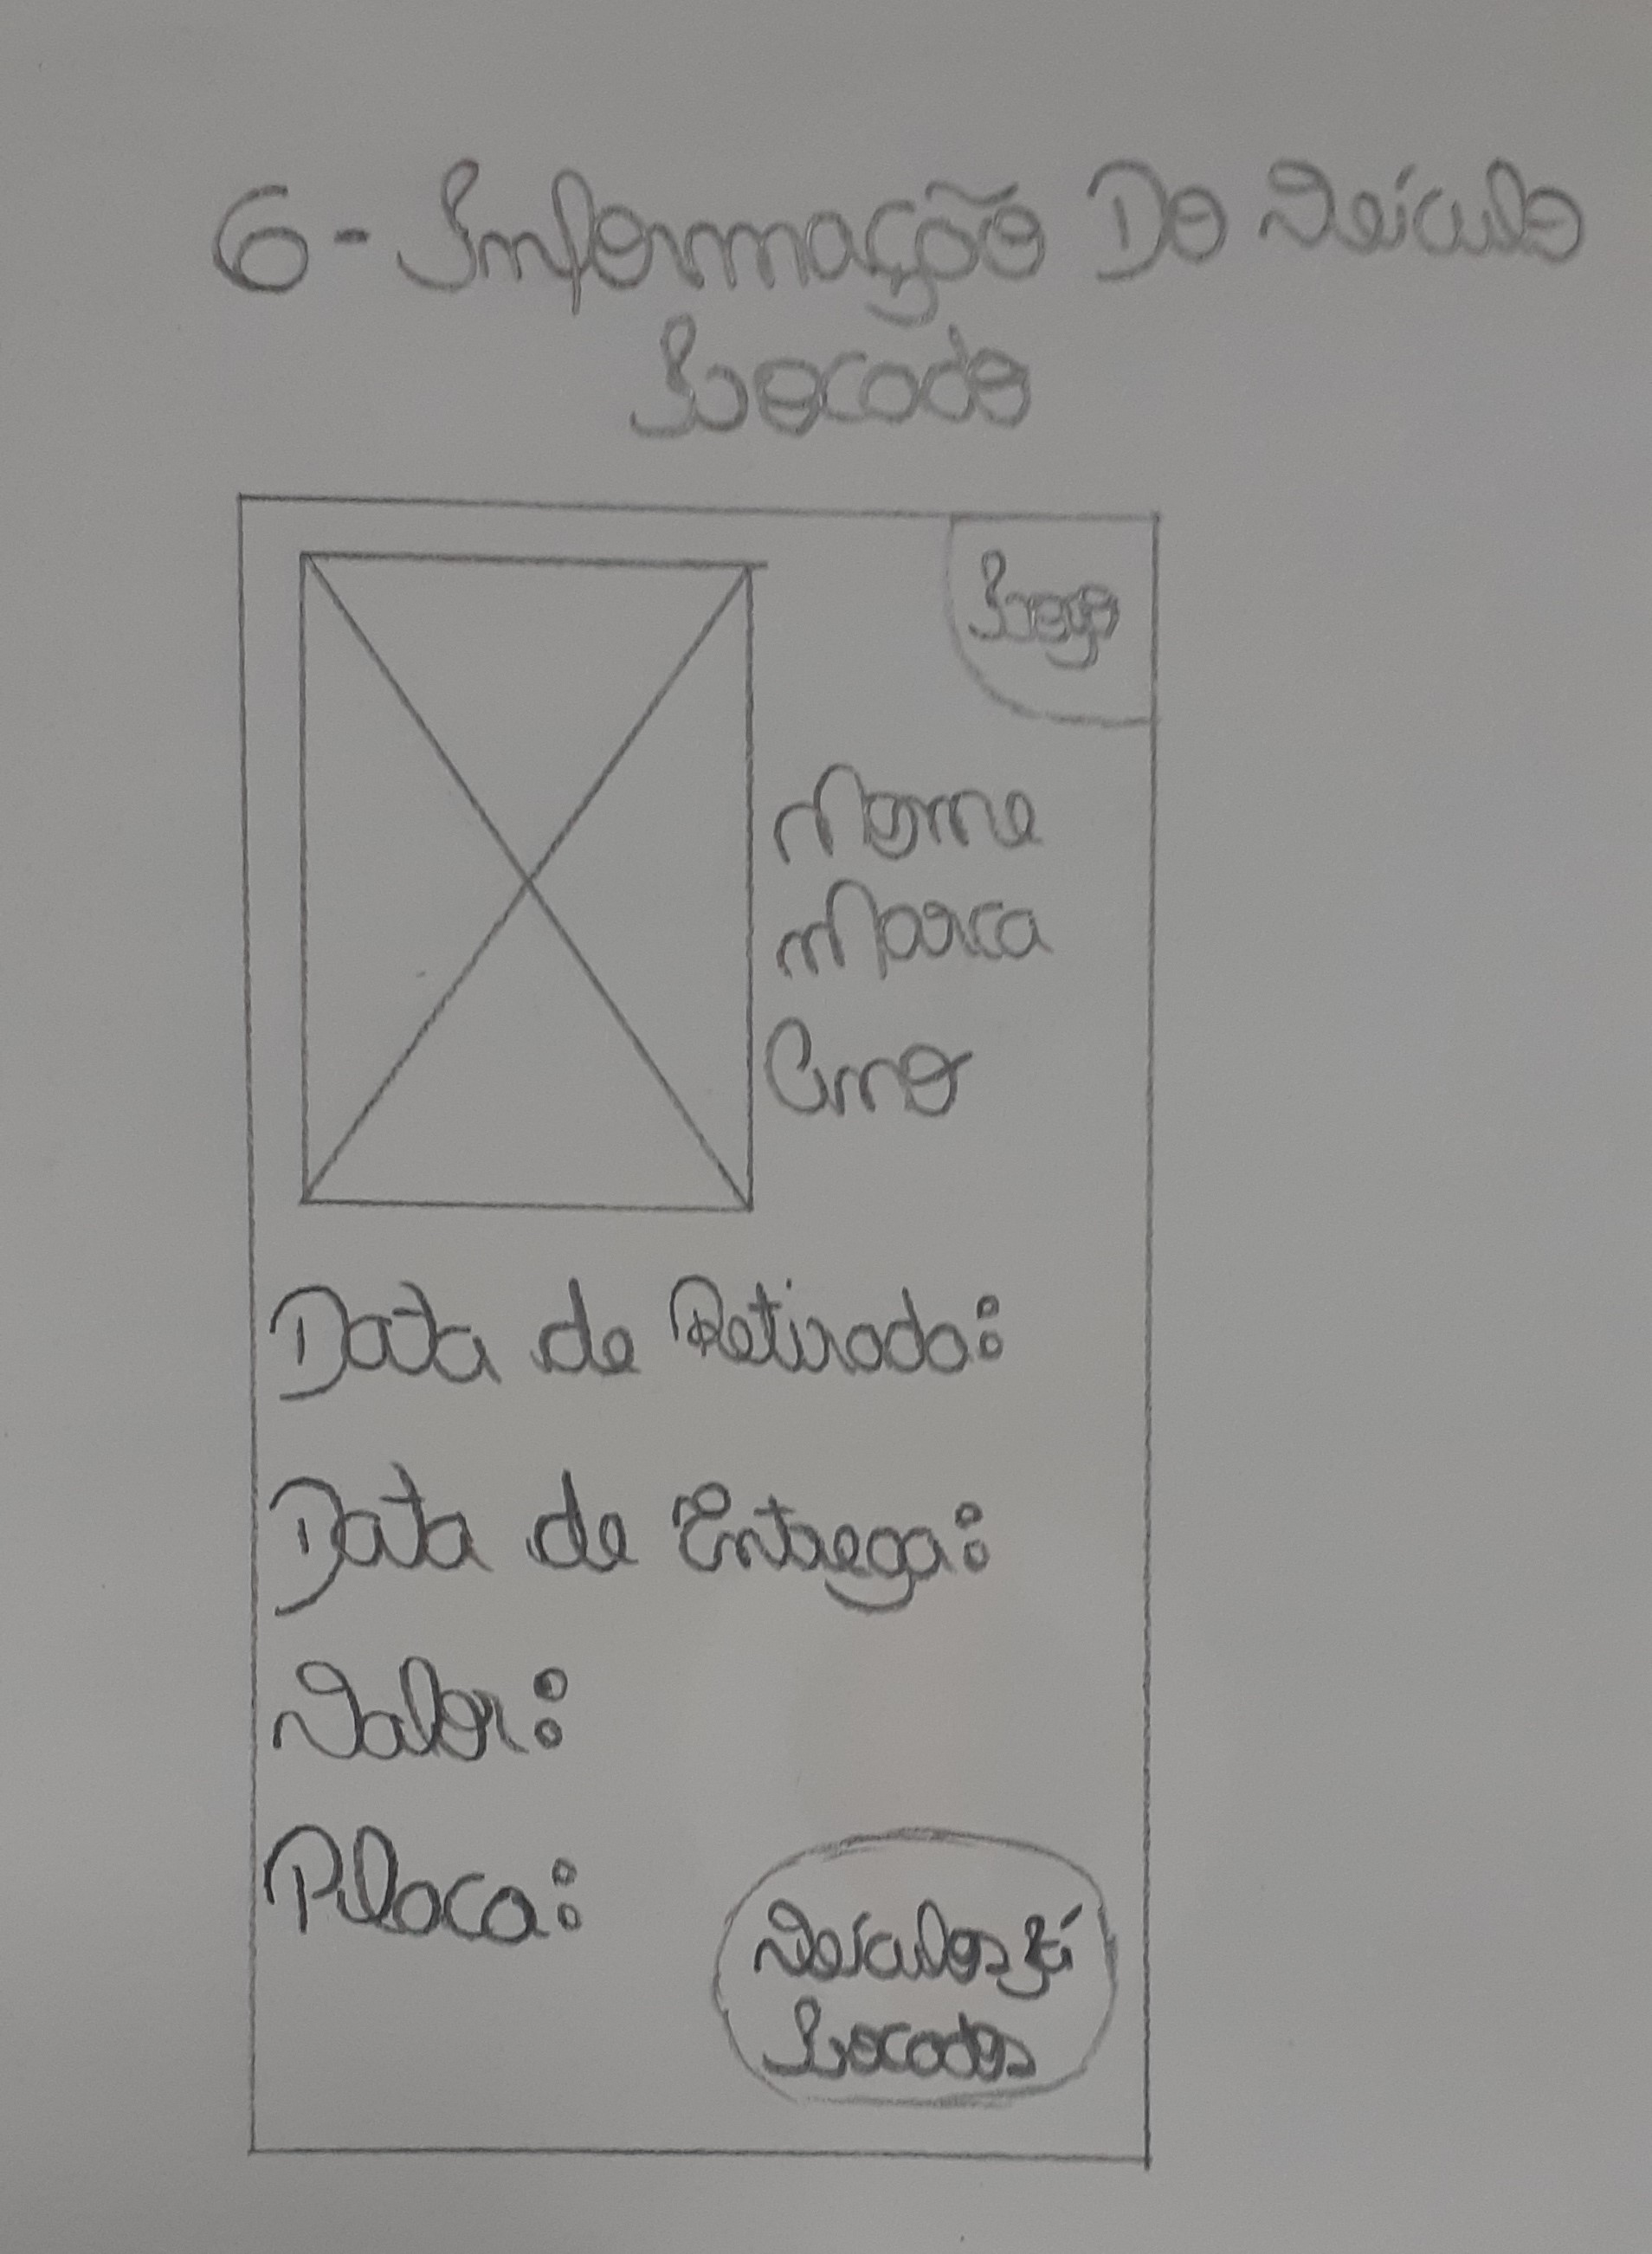 6-Informação Do Veículo
Locado
Logo
Nome
Marca
Ano
Data de Retirada:
Data de Entrega:
Valor:
Placa:
Veículos já
Locados